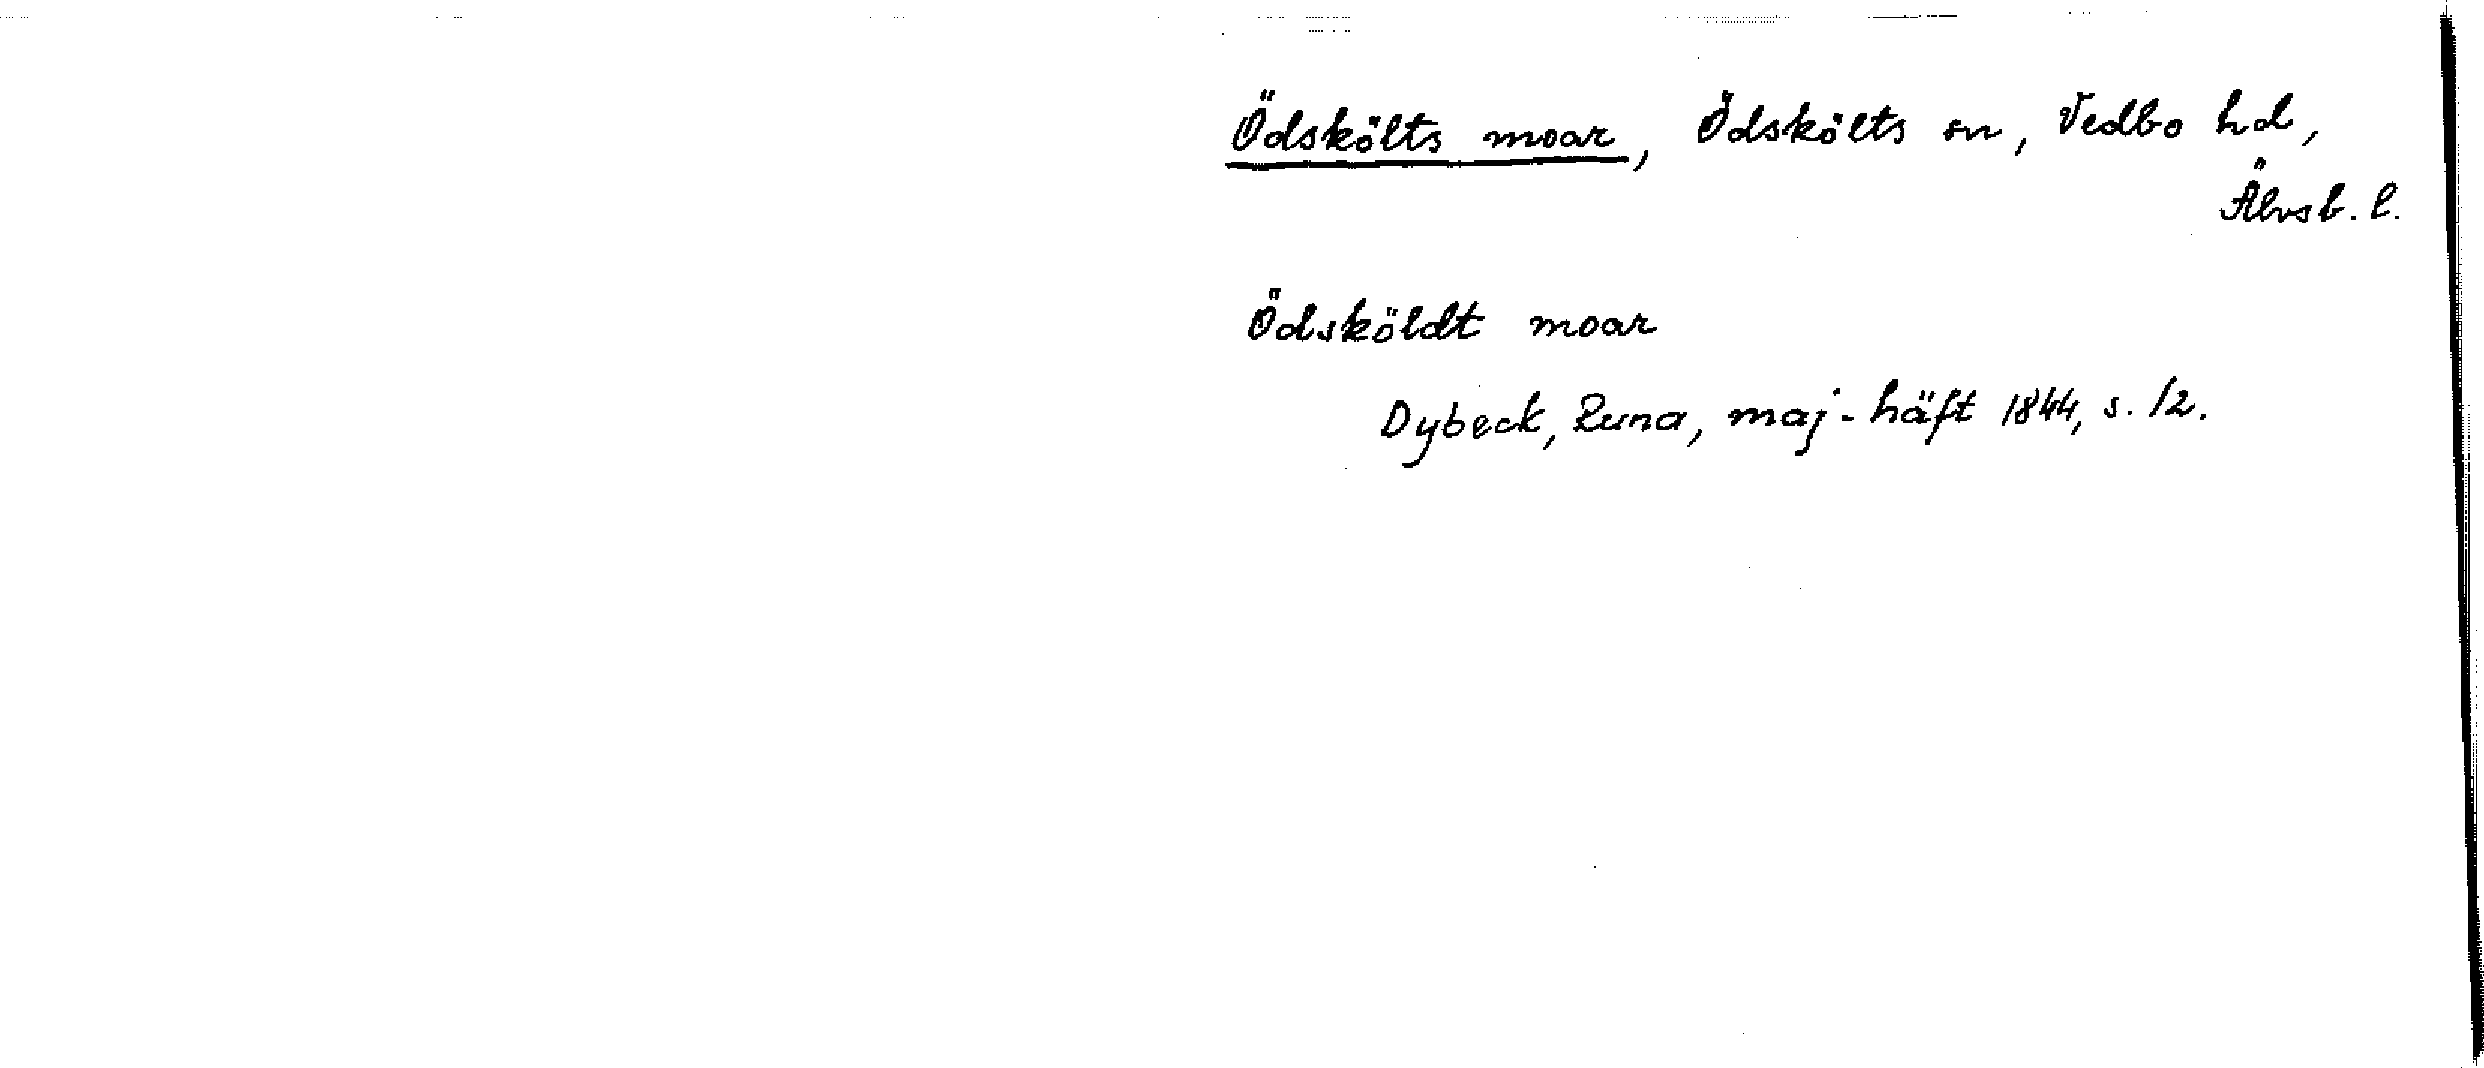 Ödskölts moar, Ödskölts sn, Vedbo hd,
Älvsb. l.
Ödsköldt moar
Dybeck, Runa, maj-häft 1844, s. 12.